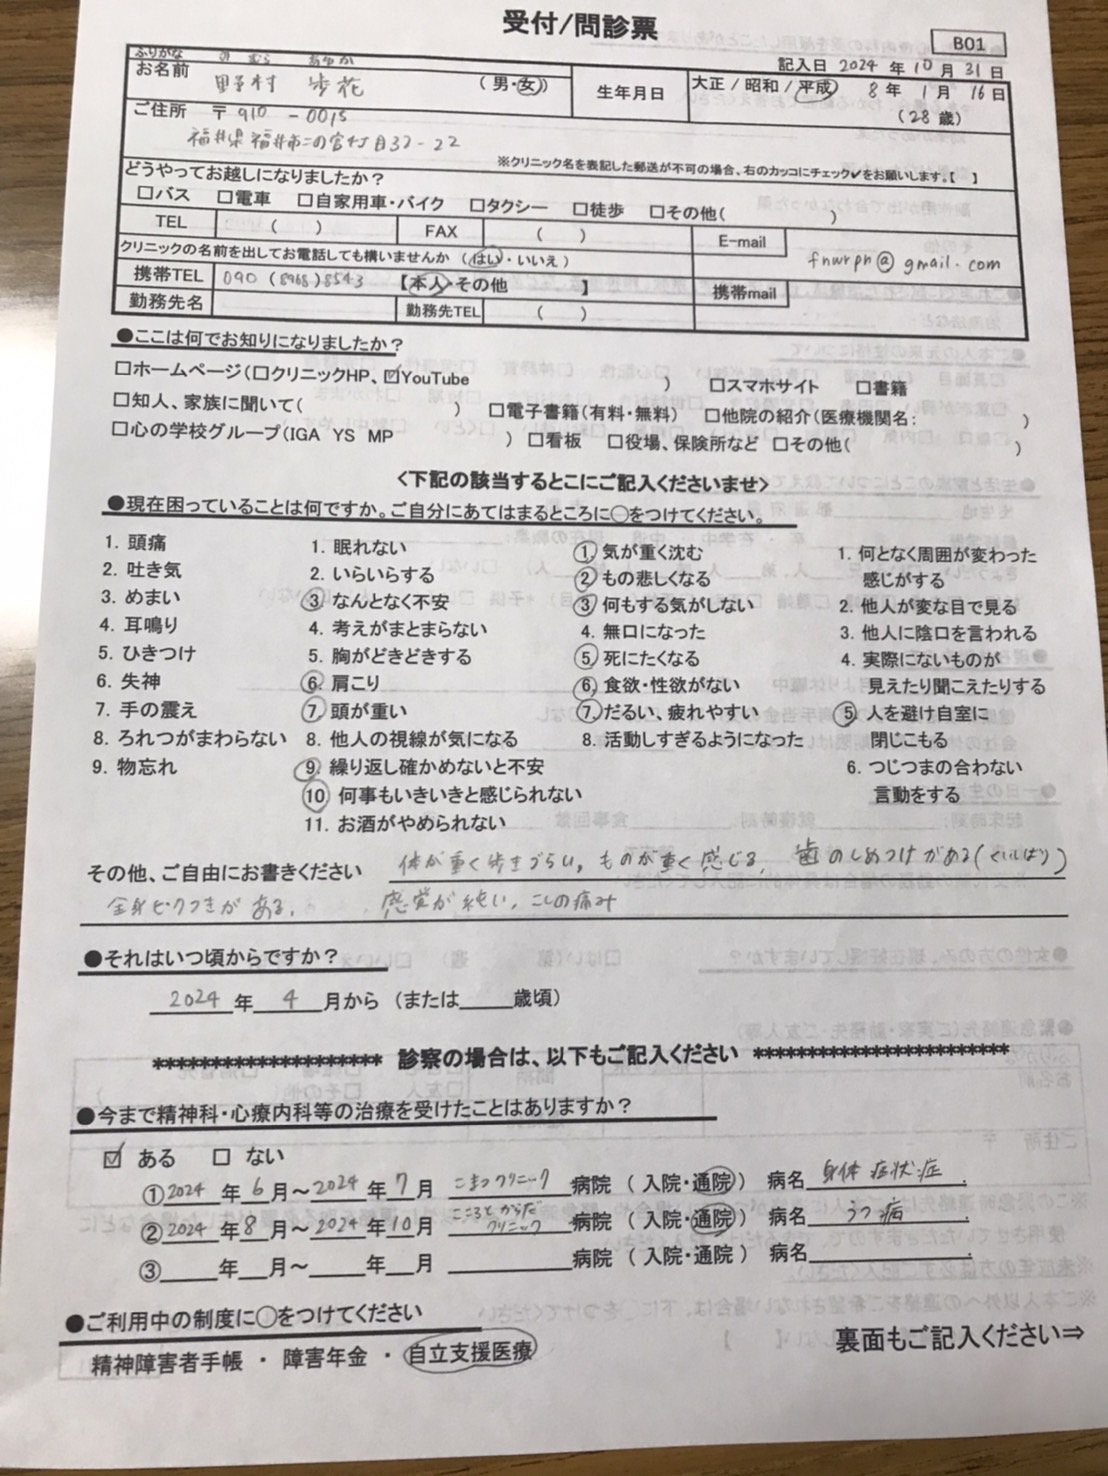 受付/問診票
B01
記入日 2024 年 10 月 31 日
ふりがな のむら あゆか
お名前 野村 歩花 (男・女)
生年月日 大正 / 昭和 / 平成 8 年 1 月 16 日
(28 歳)
ご住所 〒910 -0015
福井県福井市二の宮 丁目37-22
※クリニック名を表記した郵送が不可の場合、右のカッコにチェック✔をお願いします。【 】
どうやってお越しになりましたか？
□バス □電車 □自家用車・バイク □タクシー □徒歩 □その他( )
TEL ( ) FAX ( ) E-mail
クリニックの名前を出してお電話しても構いませんか (はい・いいえ)
fnwrpn@gmail.com
携帯TEL 090 (8968) 8543 【本人・その他 】 携帯mail
勤務先名 勤務先TEL ( )
●ここは何でお知りになりましたか？
□ホームページ(□クリニックHP、☑YouTube ) □スマホサイト □書籍
□知人、家族に聞いて( ) □電子書籍(有料・無料) □他院の紹介(医療機関名: )
□心の学校グループ(IGA YS MP ) □看板 □役場、保険所など □その他( )
<下記の該当するとこにご記入くださいませ>
●現在困っていることは何ですか。ご自分にあてはまるところに○をつけてください。
1. 頭痛
2. 吐き気
3. めまい
4. 耳鳴り
5. ひきつけ
6. 失神
7. 手の震え
8. ろれつがまわらない
9. 物忘れ
1. 眠れない
2. いらいらする
③ なんとなく不安
4. 考えがまとまらない
5. 胸がどきどきする
⑥ 肩こり
⑦ 頭が重い
8. 他人の視線が気になる
⑨ 繰り返し確かめないと不安
⑩ 何事もいきいきと感じられない
11. お酒がやめられない
① 気が重く沈む
② もの悲しくなる
③ 何もする気がしない
4. 無口になった
⑤ 死にたくなる
⑥ 食欲・性欲がない
⑦ だるい、疲れやすい
8. 活動しすぎるようになった
1. 何となく周囲が変わった
感じがする
2. 他人が変な目で見る
3. 他人に陰口を言われる
4. 実際にないものが
見えたり聞こえたりする
⑤ 人を避け自室に
閉じこもる
6. つじつまの合わない
言動をする
その他、ご自由にお書きください 体が重く歩きづらい, ものが重く感じる, 歯のしめつけがある(くいしばり)
全身ピクつきがある, 感覚が鈍い, こしの痛み
●それはいつ頃からですか？
2024 年 4 月から (または 歳頃)
********************* 診察の場合は、以下もご記入ください ************************
●今まで精神科・心療内科等の治療を受けたことはありますか？
☑ ある □ ない
①2024 年 6 月～2024 年 7 月 こまつクリニック 病院 (入院・通院) 病名 身体症状症
②2024 年 8 月～2024 年 10 月 こころとからだクリニック 病院 (入院・通院) 病名 うつ病
③ 年 月～ 年 月 病院 (入院・通院) 病名
●ご利用中の制度に○をつけてください
精神障害者手帳 ・ 障害年金 ・ 自立支援医療
裏面もご記入ください⇒